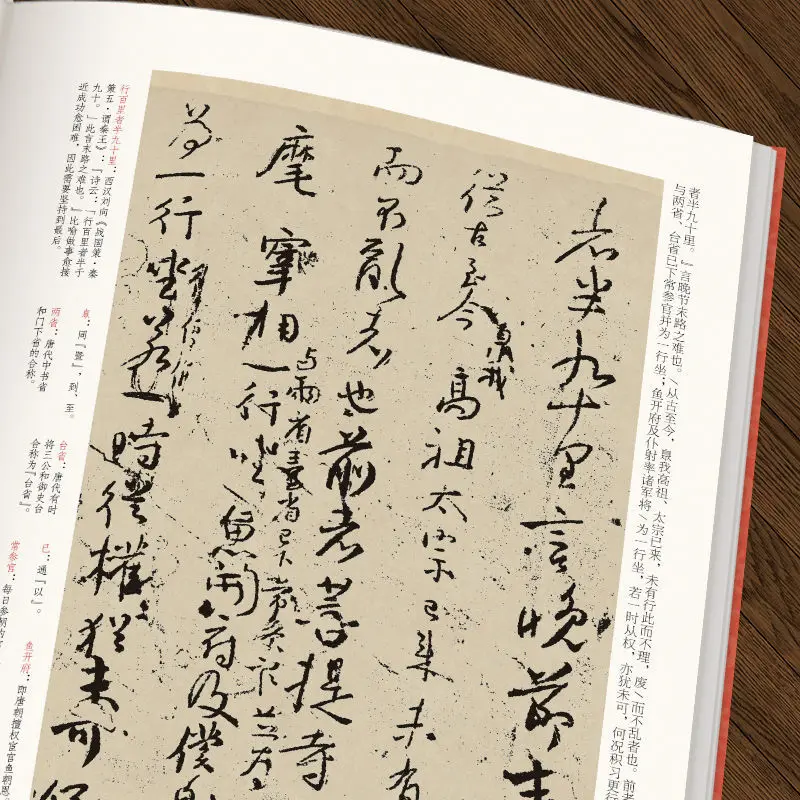 者半九十里。』言晚节末路之难也。\从古至今，臮我高祖、太宗已来，未有行此而不理，废\而不乱者也。前者
与两省、台省已下常参官并为一行坐；鱼开府及仆射率诸军将\为一行坐，若一时从权，亦犹未可，何况积习更行
者半九十里言晚節末
從古至今臮我高祖太宗已来未有
而不亂者也前者菩提寺
与兩省臺省已下常參官並為
麾宰相一行坐魚開府及僕射
為一行坐若一時從權猶未可
行百里者半九十里：西汉刘向《战国策·秦
策五·谓秦王》：「诗云：『行百里者半于
九十。』此言末路之难也。」比喻做事愈接
近成功愈困难，因此需要坚持到最后。
臮：同『暨』，到、至。
两省：唐代中书省
和门下省的合称。
台省：唐代有时
将三公和御史台
合称为『台省』。
已：通『以』。
常参官：每日参朝的
鱼开府：即唐朝擅权宦官鱼朝恩。